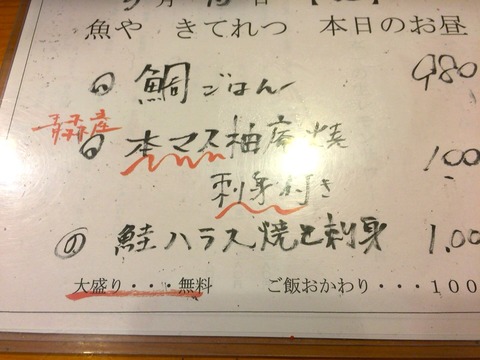 魚や きてれつ 本日のお昼
鯛ごはん 980
青森産
本マス柚庵焼 1.00
刺身付き
鮭ハラス焼と刺身 1.00
大盛り・・・無料 ご飯おかわり・・・100